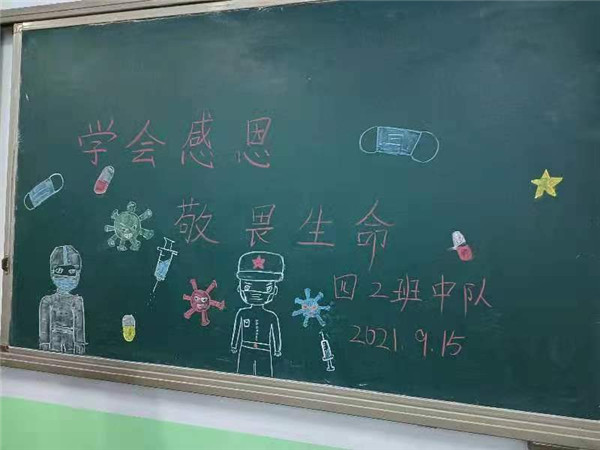 学会感恩
敬畏生命
四2班中队
2021.9.15